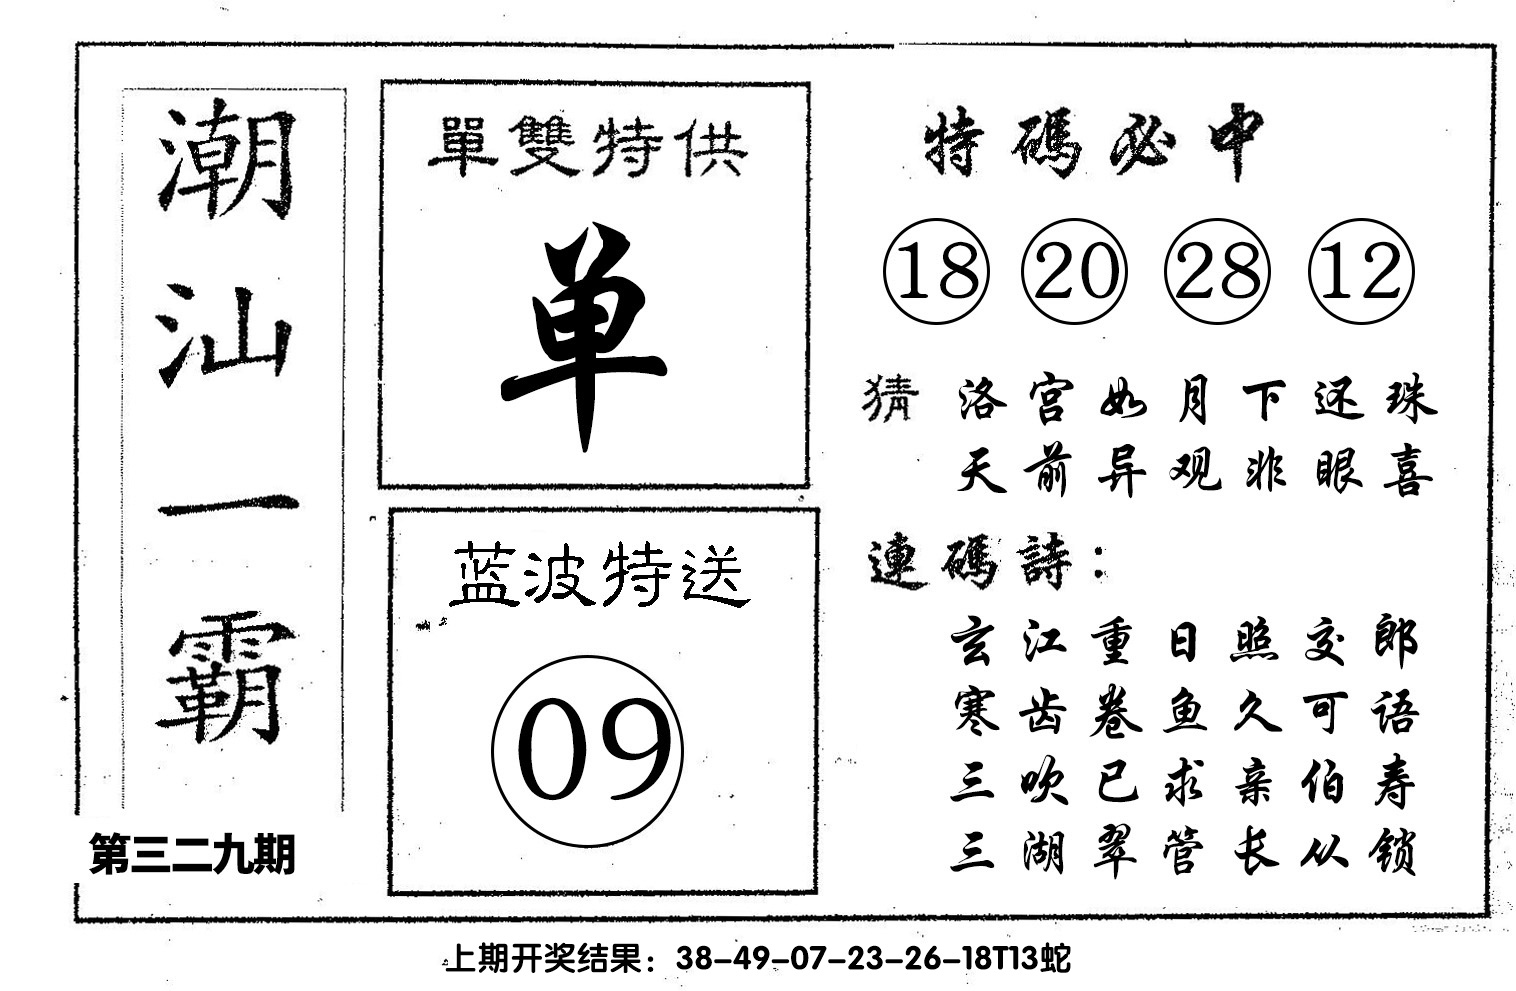 潮汕一霸
第三二九期
單雙特供
单
蓝波特送
09
特碼必中
18 20 28 12
猜 洛宫如月下还珠
天前异观非眼喜
連碼詩：
玄江重日照交郎
寒齿卷鱼久可语
三吹已求亲伯寿
三湖翠管长从锁
上期开奖结果：38-49-07-23-26-18T13蛇